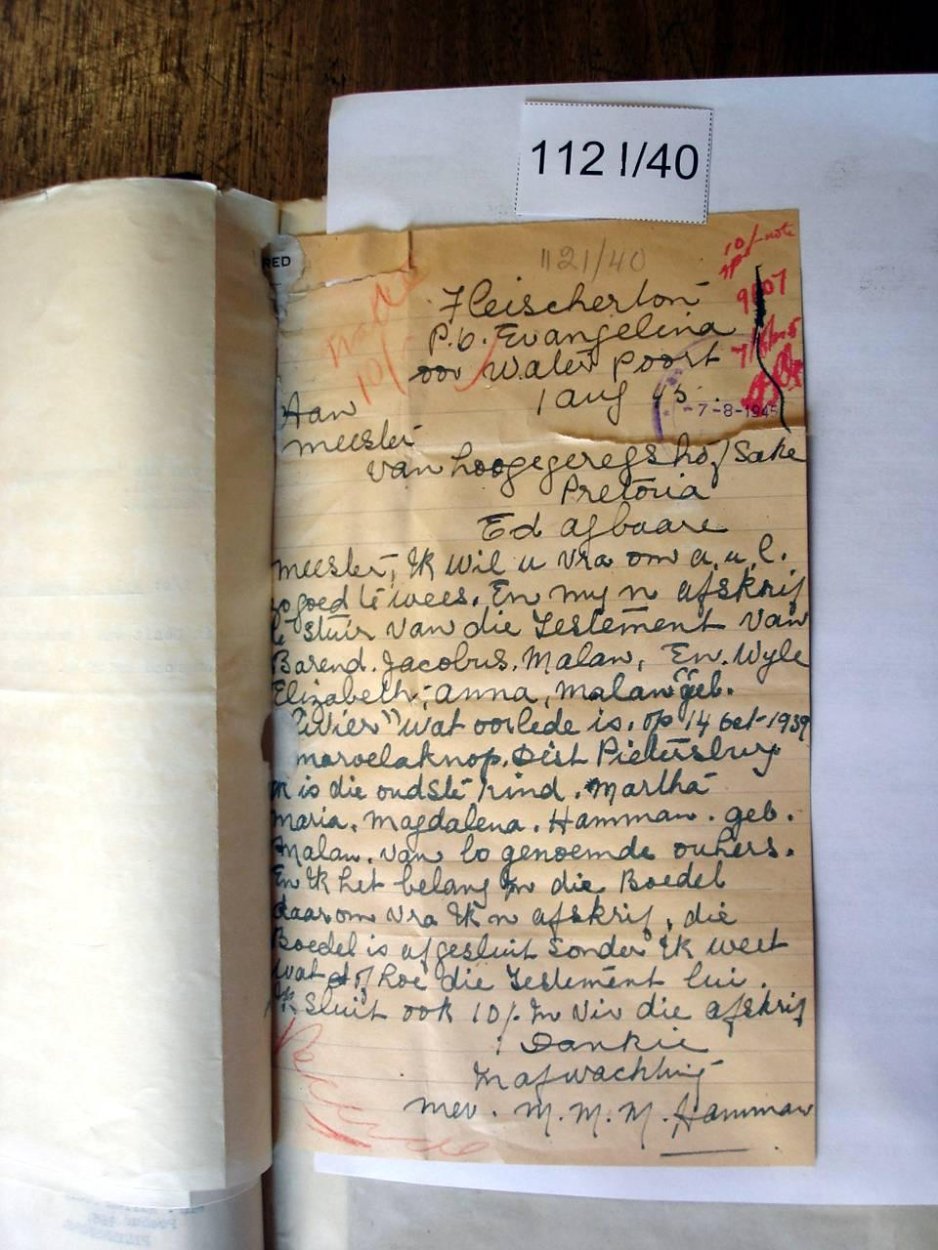 112 1/40
RED
1121/40
10/- note
9607
Fleischerton
P.O. Evangelina
oor Water Poort
1 Aug 45.
-7-8-1945
Aan
Meester
van hoogegeregshof Sake
Pretoria
Ed agbaare
Meester, Ek wil u vra om a.u.l.
zo goed te wees. En my n afskrif
te stuir van die Testement van
Barend. Jacobus. Malan, En. Wyle
Elizabeth; anna, Malan "geb.
Vivier" wat oorlede is. op 14 oct-1939
maroelaknop. Dist Pietersburg
is die oudste kind. Martha
Maria. Magdalena. Hamman. geb.
Malan. van bo genoemde ouhers.
En Ek het belang in die Boedel
daarom vra Ek n afskrif, die
Boedel is afgesluit sonder Ek weet
wat of hoe die Testement lui.
Ek Sluit ook 10/- In vir die afskrif
Dankie
In afwachting
mev. M. M. M. Hamman